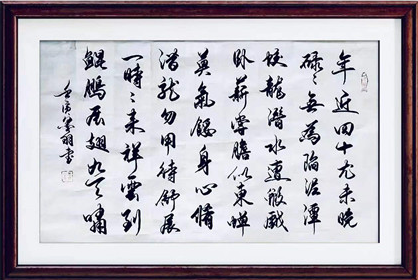 年近四十尤未晚
碌々無為陷泥潭
蛟龍潛水遭蝦戲
卧薪嘗膽似東蟬
莫氣餒身心脩
潛龍勿用待舒展
一時々来祥雲到
鯤鵬展翅九天嘯
書